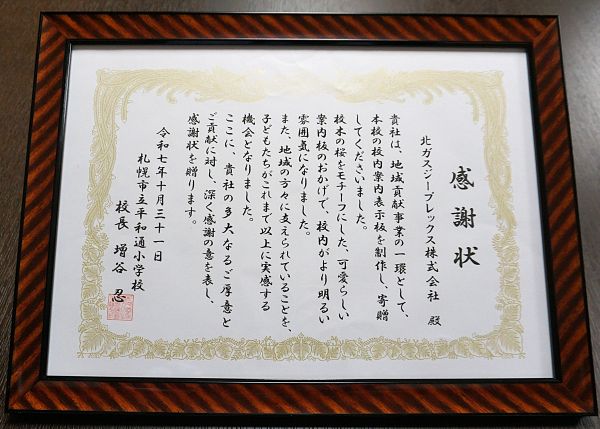 感謝状
北ガスジープレックス株式会社 殿
貴社は、地域貢献事業の一環として、
本校の校内案内表示板を制作し、寄贈
してくださいました。
校木の桜をモチーフにした、可愛らしい
案内板のおかげで、校内がより明るい
雰囲気になりました。
また、地域の方々に支えられていることを、
子どもたちがこれまで以上に実感する
機会となりました。
ここに、貴社の多大なるご厚意と
ご貢献に対し、深く感謝の意を表し、
感謝状を贈ります。
令和七年十月三十一日
札幌市立平和通小学校
校長 増谷 忍